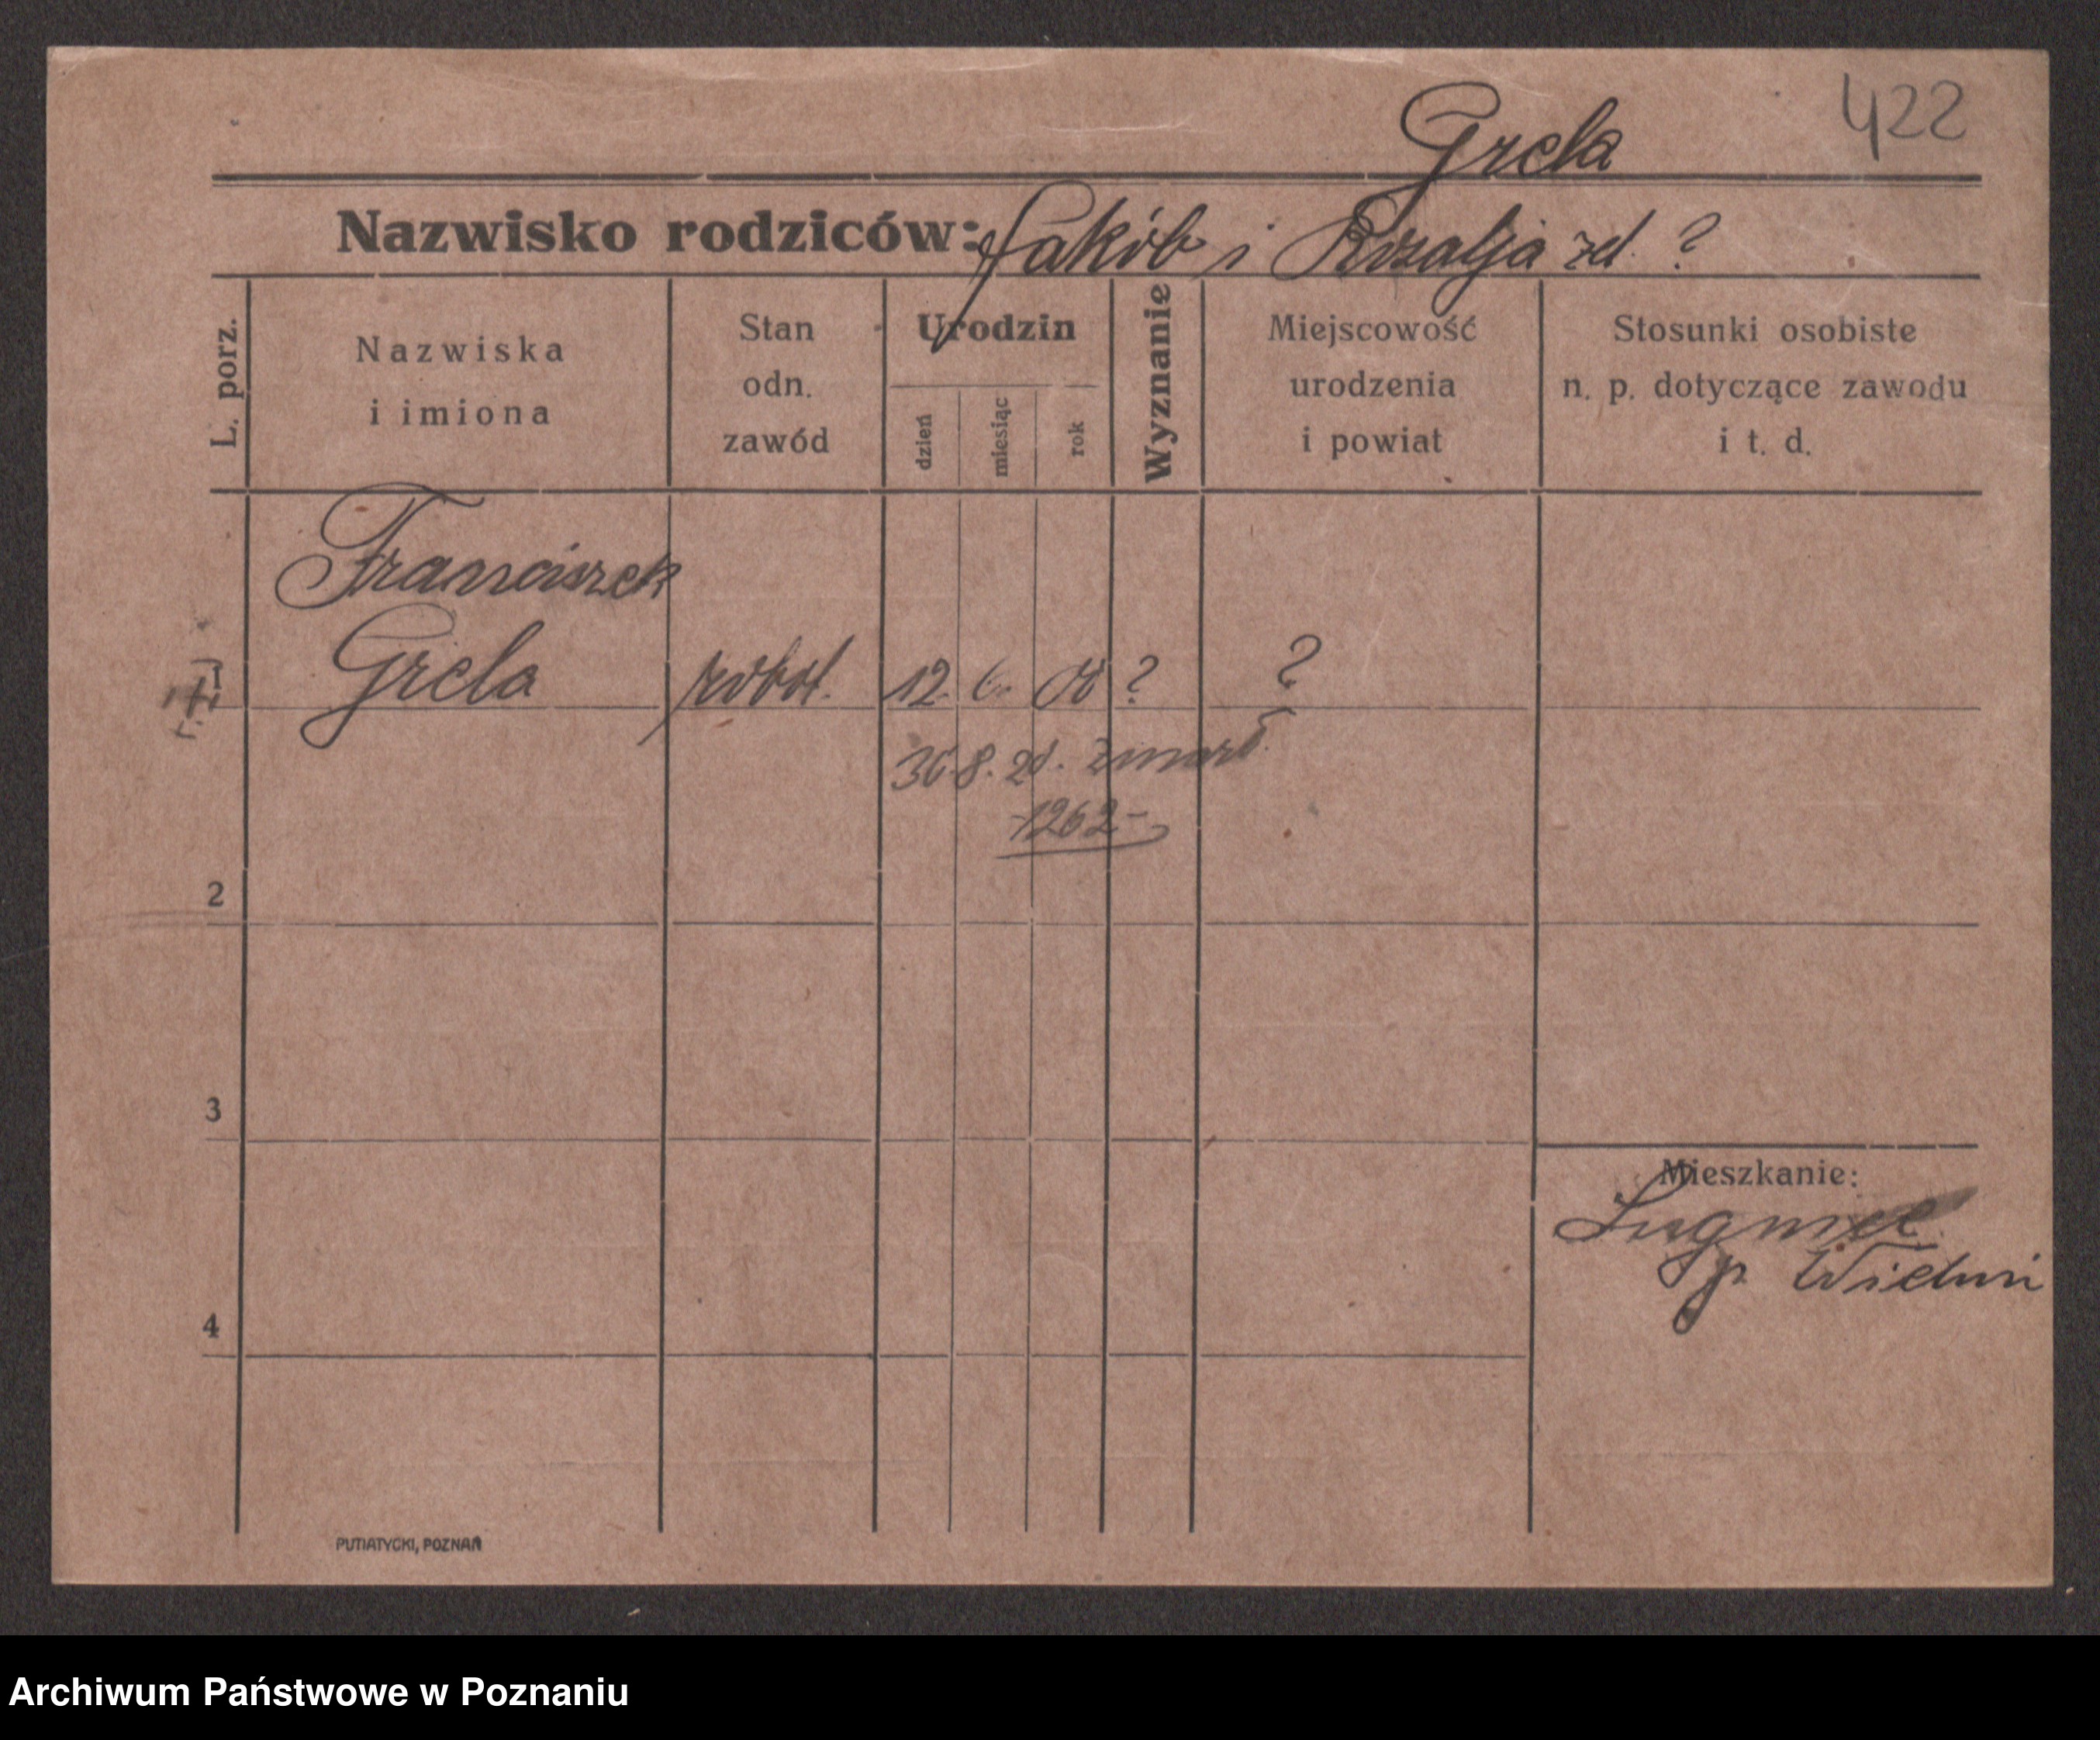 422
Grela
Nazwisko rodziców: Jakób i Rozalja zd. ?
L. porz.
Nazwiska
i imiona
Stan
odn.
zawód
Urodzin
dzień
miesiąc
rok
Wyznanie
Miejscowość
urodzenia
i powiat
Stosunki osobiste
n. p. dotyczące zawodu
i t. d.
Franciszek
1 Grela robot. 12. 6. ? ?
8. zmarł.
-1262-
2
3
Mieszkanie:
p.
4
PUTIATYCKI, POZNAŃ
Archiwum Państwowe w Poznaniu